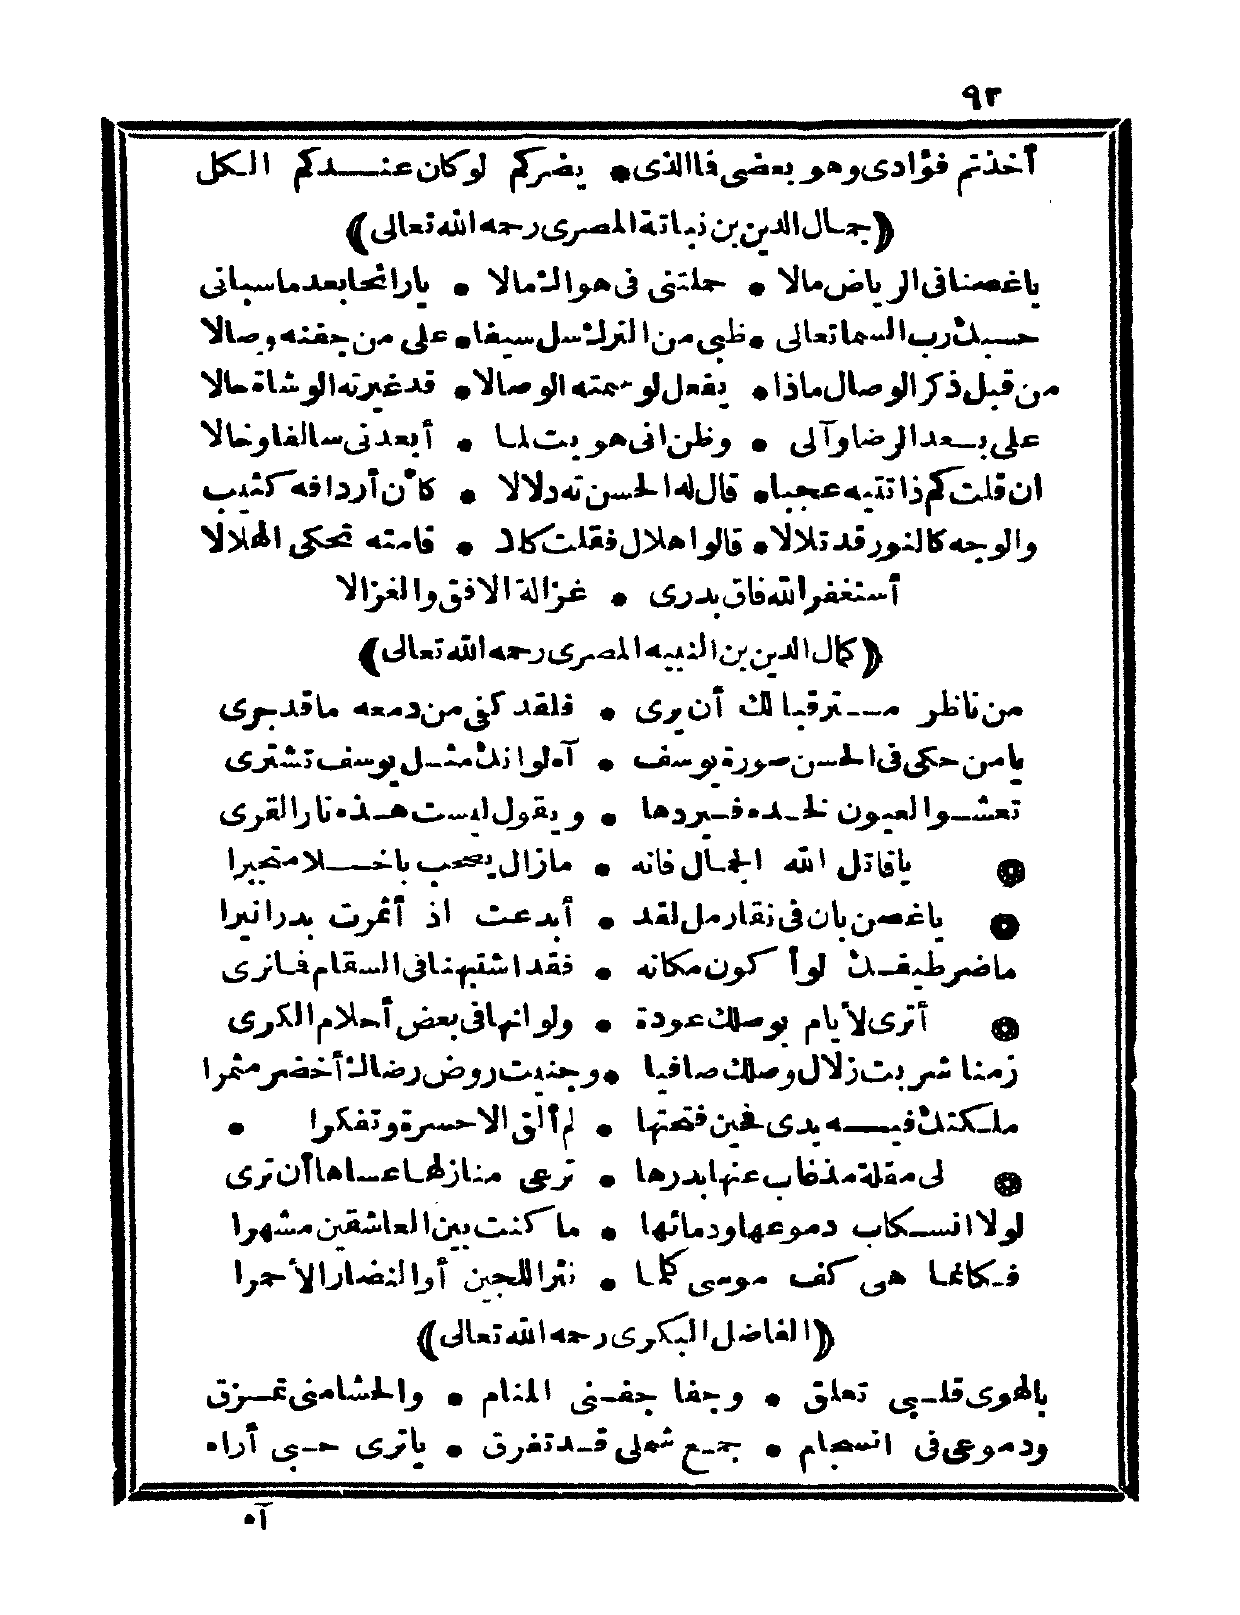 ٩٢
أخذتم فؤادى وهو بعضى فاالذى • يضركم لو كان عندكم الكل
﴿جمال الدين بن نباتة المصرى رحمه الله تعالى﴾
ياغصنا فى الرياض مالا • حملتنى فى هواك مالا • يارائحا بعد ماسبانى
حسبك رب السما تعالى • ظبى من الترك سل سيفا • على من جفنه وصالا
من قبل ذكر الوصال ماذا • يفعل لو سمته الوصالا • قد غيرته الوشاة حالا
على بعد الرضا وآلى • وظن انى هويت لما • أبعدنى سالفا وخالا
ان قلت كم ذا تتيه عجبا • قال له الحسن ته دلالا • كأن أردافه كثيب
والوجه كالنور قد تلالا • قالوا هلال فقلت كلا • قامته تحكى الهلالا
أستغفر الله فاق بدرى • غزالة الافق والغزالا
﴿كمال الدين بن النبيه المصرى رحمه الله تعالى﴾
من ناظر مترقبا لك أن يرى • فلقد كفى من دمعه ماقد جرى
يامن حكى فى الحسن صورة يوسف • آه لو انك مثل يوسف تشترى
تعشو العيون لخده فيردها • ويقول ليست هذه نار القرى
ياقاتل الله الجمال فانه • مازال يصحب باخلا متجبرا
ياغصن بان فى نقا رمل لقد • أبدعت اذ أثمرت بدرا نيرا
ماضر طيفك لو أكون مكانه • فقد اشتبهنا فى السقام فانرى
أترى لأيام بوصلك عودة • ولو انها فى بعض أحلام الكرى
زمنا شربت زلال وصلك صافيا • وجنيت روض رضاك أخضر مثمرا
ملكتك فيه يدى فحين فتحتها • لم ألق الاحسرة وتفكرا •
لى مقلة مذغاب عنها بدرها • ترعى منازلها عساها أن ترى
لولا انسكاب دموعها ودمائها • ماكنت بين العاشقين مشهرا
فكانما هى كف موسى كلما • نثرا للجين أو النضار الأحمرا
﴿الفاضل البكرى رحمه الله تعالى﴾
بالهوى قلبى تعلق • وجفا جفنى المنام • والحشا منى تمزق
ودموعى فى انسجام • جمع شملى قد تفرق • ياترى حبى أراه
آه